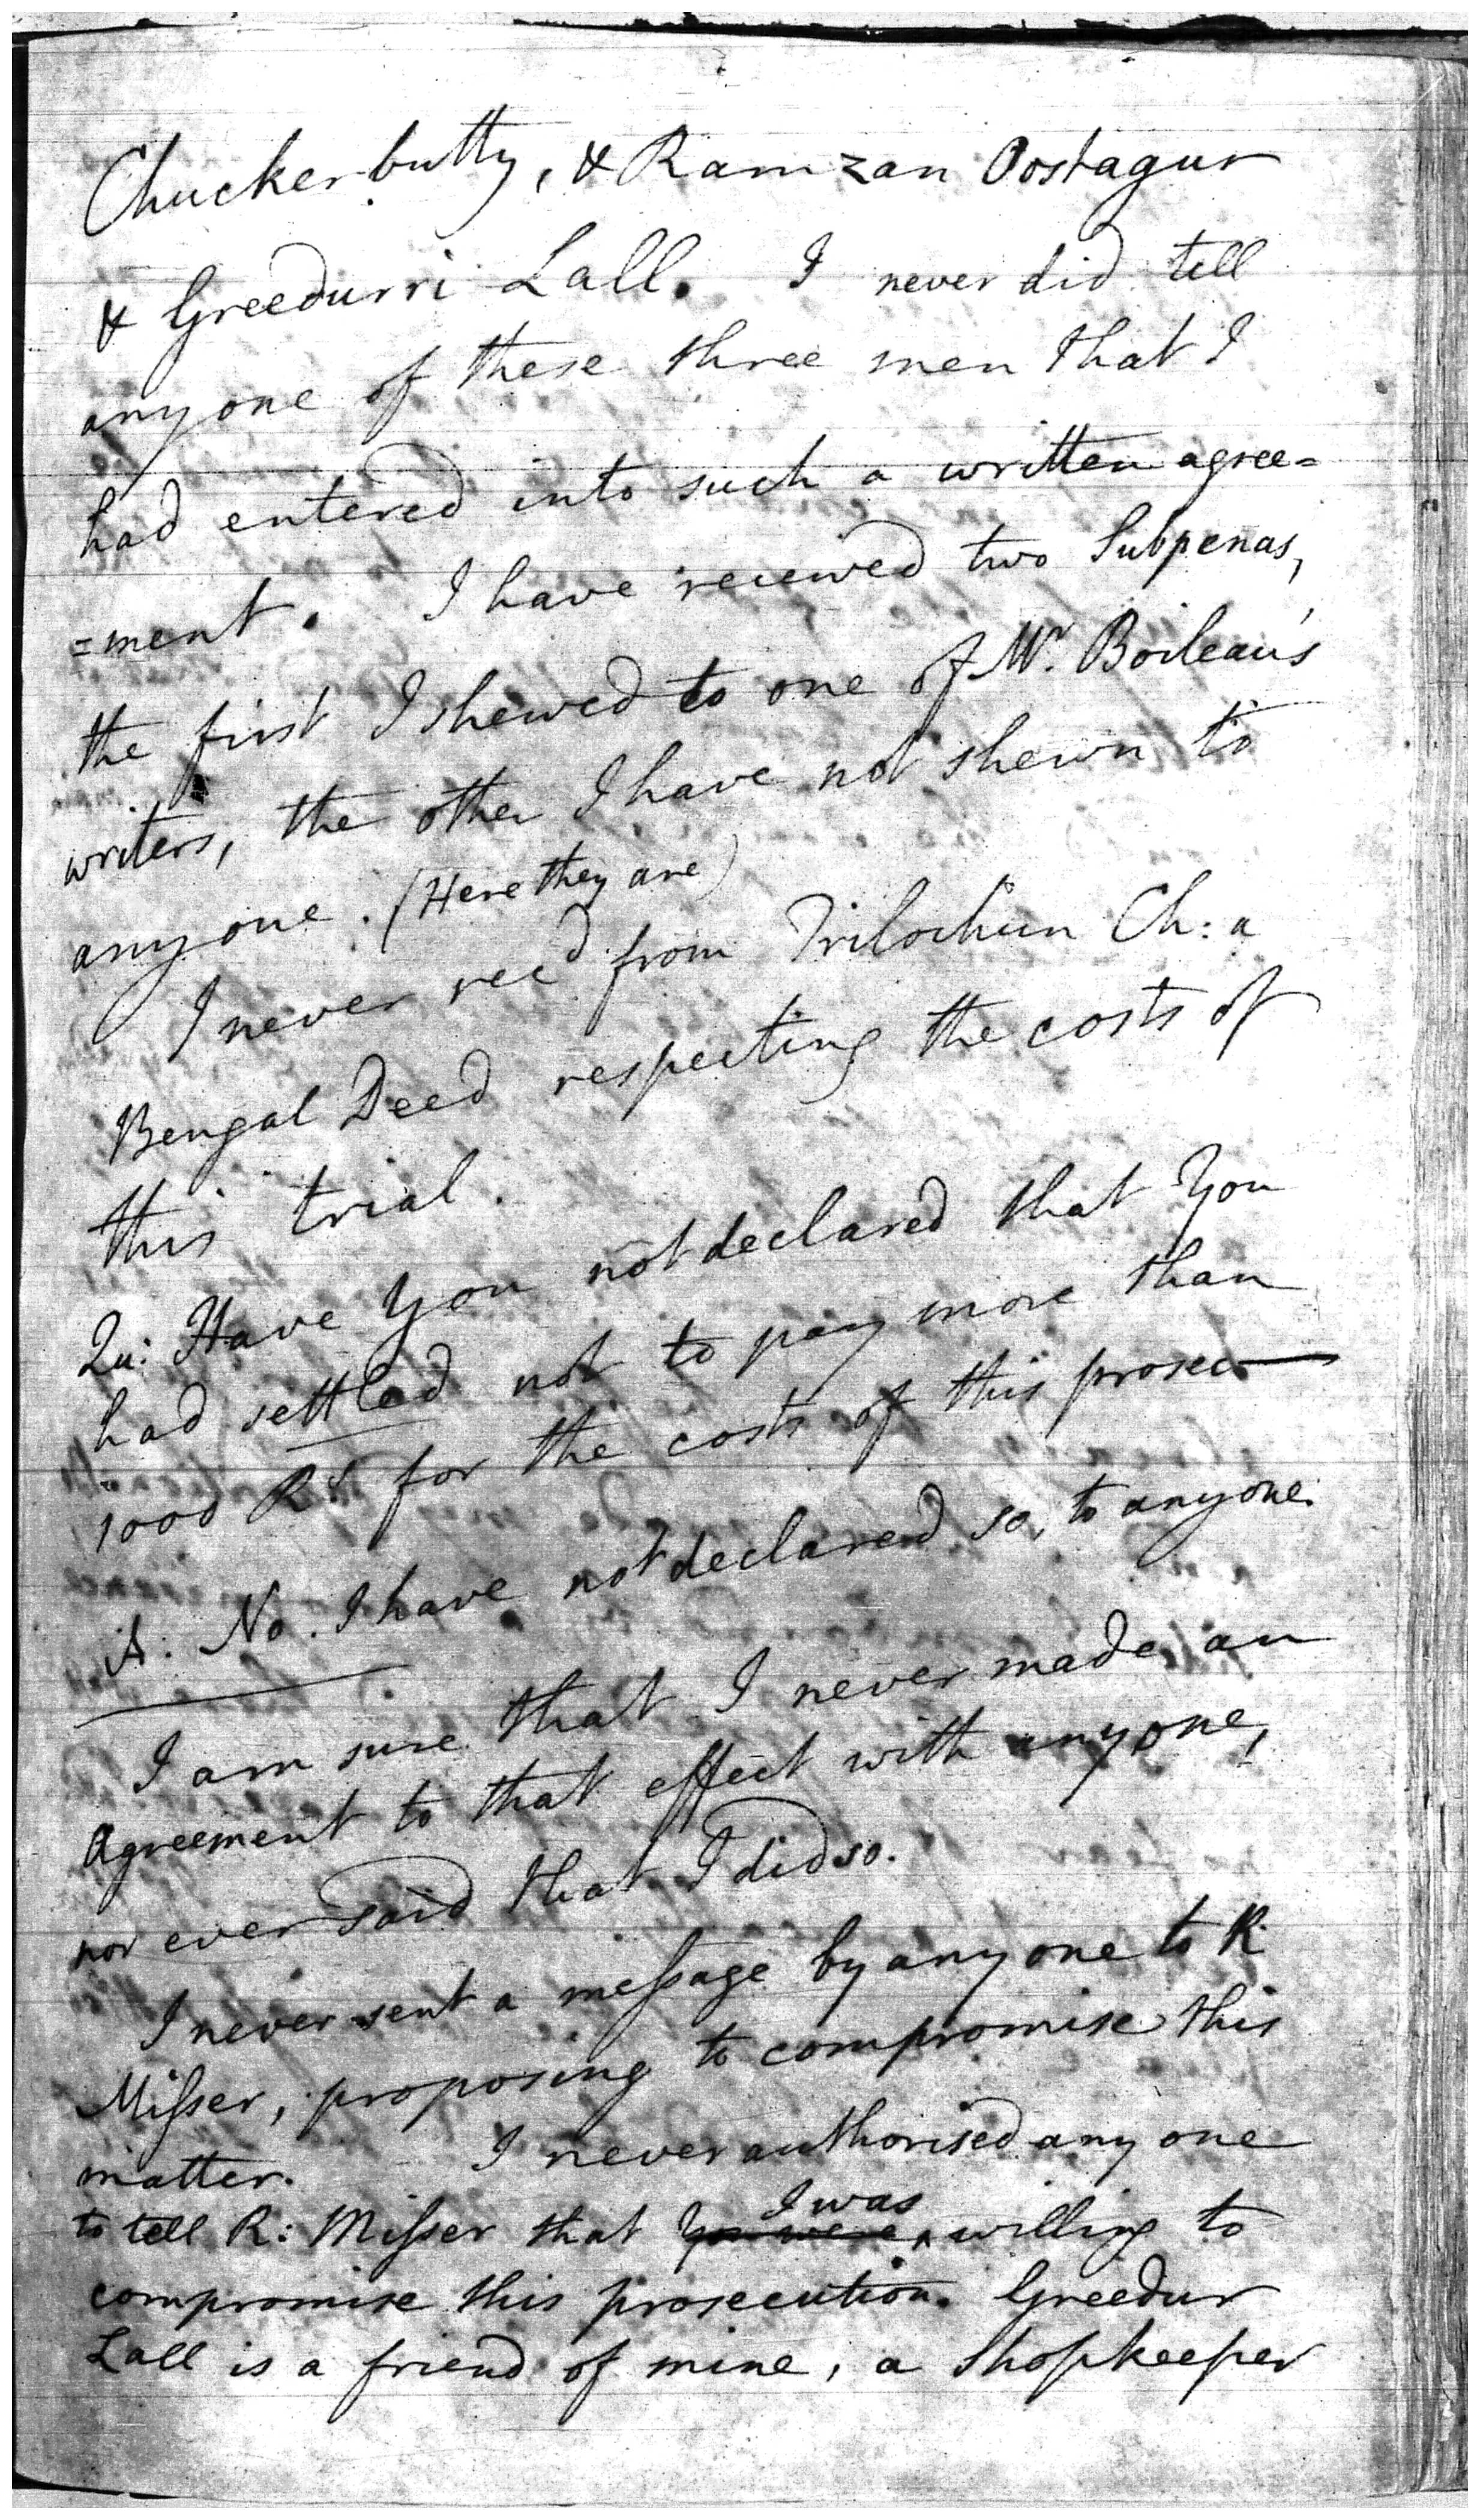 Chuckerbutty, & Ramzan Oostagur
& Greedurri Lall. I never did tell
any one of these three men that I
had entered into such a written agree=
=ment. I have received two Subpenas,
the first I shewed to one of Mr. Boileau's
writers, the other I have not shewn to
any one. (Here they are)
I never recd from Trilochun Ch: a
Bengal Deed respecting the costs of
this trial.
Qu: Have you not declared that You
had settled not to pay more than
1000 Rs for the costs of this prosec—
A: No. I have not declared so, to anyone.
I am sure that I never made an
Agreement to that effect with any one,
nor ever said that I did so.
I never sent a message by any one to R
Misser, proposing to compromise this
matter. I never authorised any one
to tell R: Misser that you were I was willing to
compromise this prosecution. Greedur
Lall is a friend of mine, a Shopkeeper